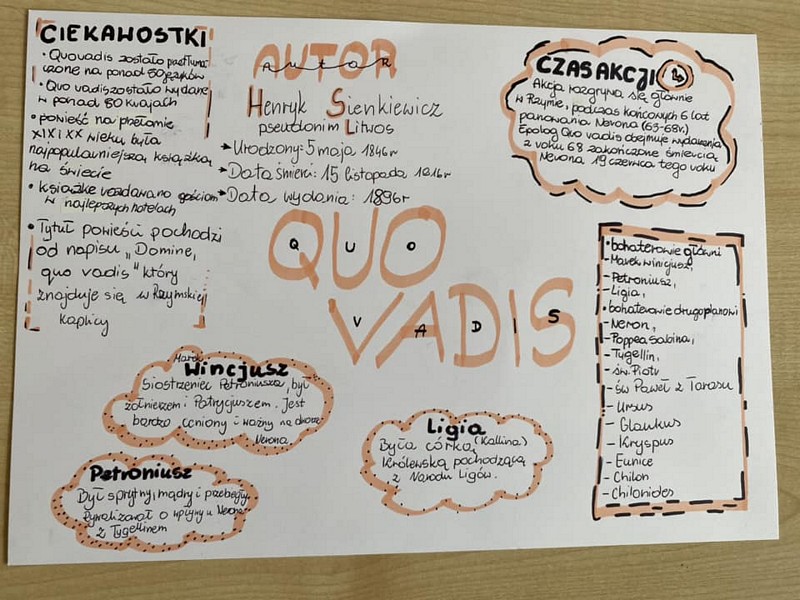 CIEKAWOSTKI
• Quo vadis zostało przetłuma
czone na ponad 50 języków
• Quo vadis zostało wydane
w ponad 80 krajach
• powieść na przełomie
XIX i XX wieku była
najpopularniejszą książką
na świecie
• książkę rozdawano gościom
w najlepszych hotelach
• Tytuł powieści pochodzi
od napisu „Domine,
quo vadis" który
znajduje się w Rzymskiej
kaplicy
AUTOR
Autor
Henryk Sienkiewicz
pseudonim Litwos
Urodzony: 5 maja 1846r
Data śmierci: 15 listopada 1916r
Data wydania: 1896r
CZAS AKCJI
Akcja rozgrywa się głównie
w Rzymie, podczas końcowych 6 lat
panowania Nerona (63-68r.)
Epolog Quo vadis obejmuje wydarzenia
z roku 68 zakończone śmiercią
Nerona 19 czerwca tego roku
QUO
QUO
VADIS
VADIS
• bohaterowie główni
- Marek winicjusz,
- Petroniusz,
- Ligia,
• bohaterowie drugoplanowi
- Neron,
- Poppea Sabina,
- Tygellin,
- św. Piotr
- św Paweł z Tarasu
- Ursus
- Glaukus
- Kryspus
- Eunice
- Chilon
- Chilonides
Marek
Wincjusz
Siostrzeniec Petroniusza, był
żołnierzem i Patrycjuszem. Jest
bardzo ceniony i ważny na dworze
Nerona.
Ligia
Była córką (Kallina)
Królewską pochodzącą
z Narodu Ligów.
Petroniusz
Był sprytny, mądry i przebiegły
Rywalizował o wpływy u Nerona
z Tygellinem